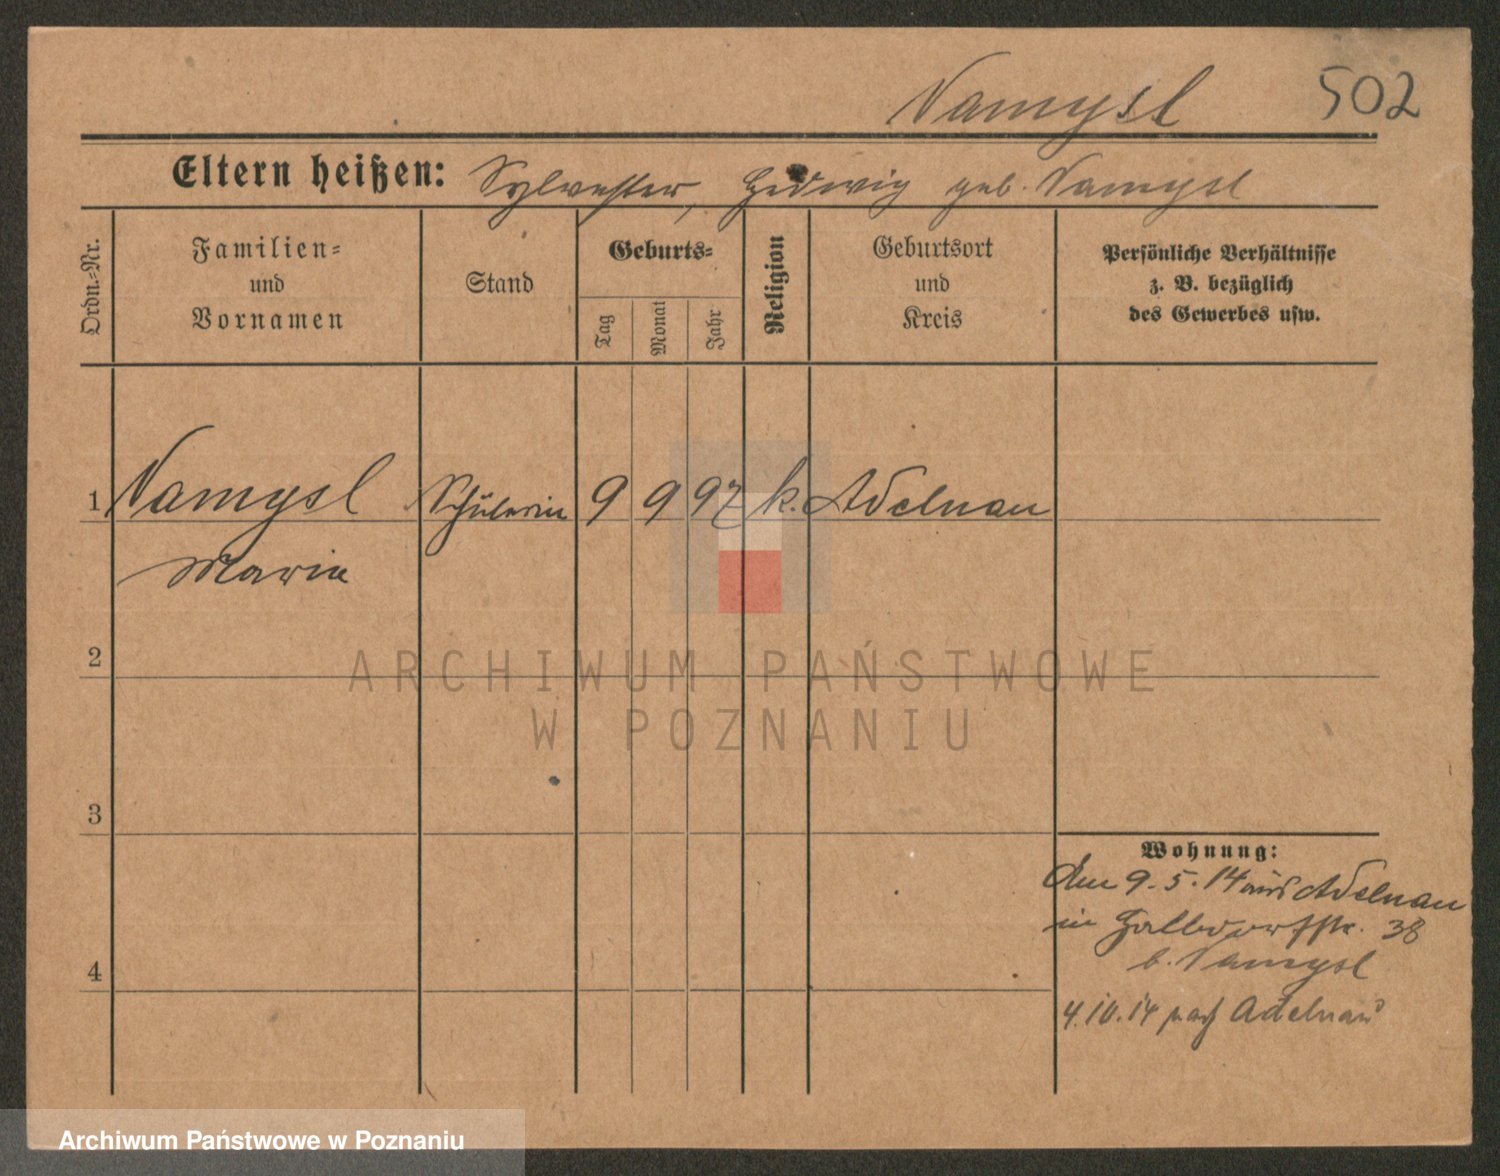 Namysl 502
Eltern heißen: Sylvester, Hedwig geb. Namysl
Ordn.=Nr.
Familien=
und
Vornamen
Stand
Geburts=
Tag
Monat
Jahr
Religion
Geburtsort
und
Kreis
Persönliche Verhältnisse
z. B. bezüglich
des Gewerbes usw.
1 Namysl Schülerin 9 9 97 k. Adelnau
Maria
2
ARCHIWUM PAŃSTWOWE
W POZNANIU
3
Wohnung:
Am 9. 5. 14 aus Adelnau
in Halbdorfstr. 38
b. Namysl
4
4.10.14 nach Adelnau
Archiwum Państwowe w Poznaniu